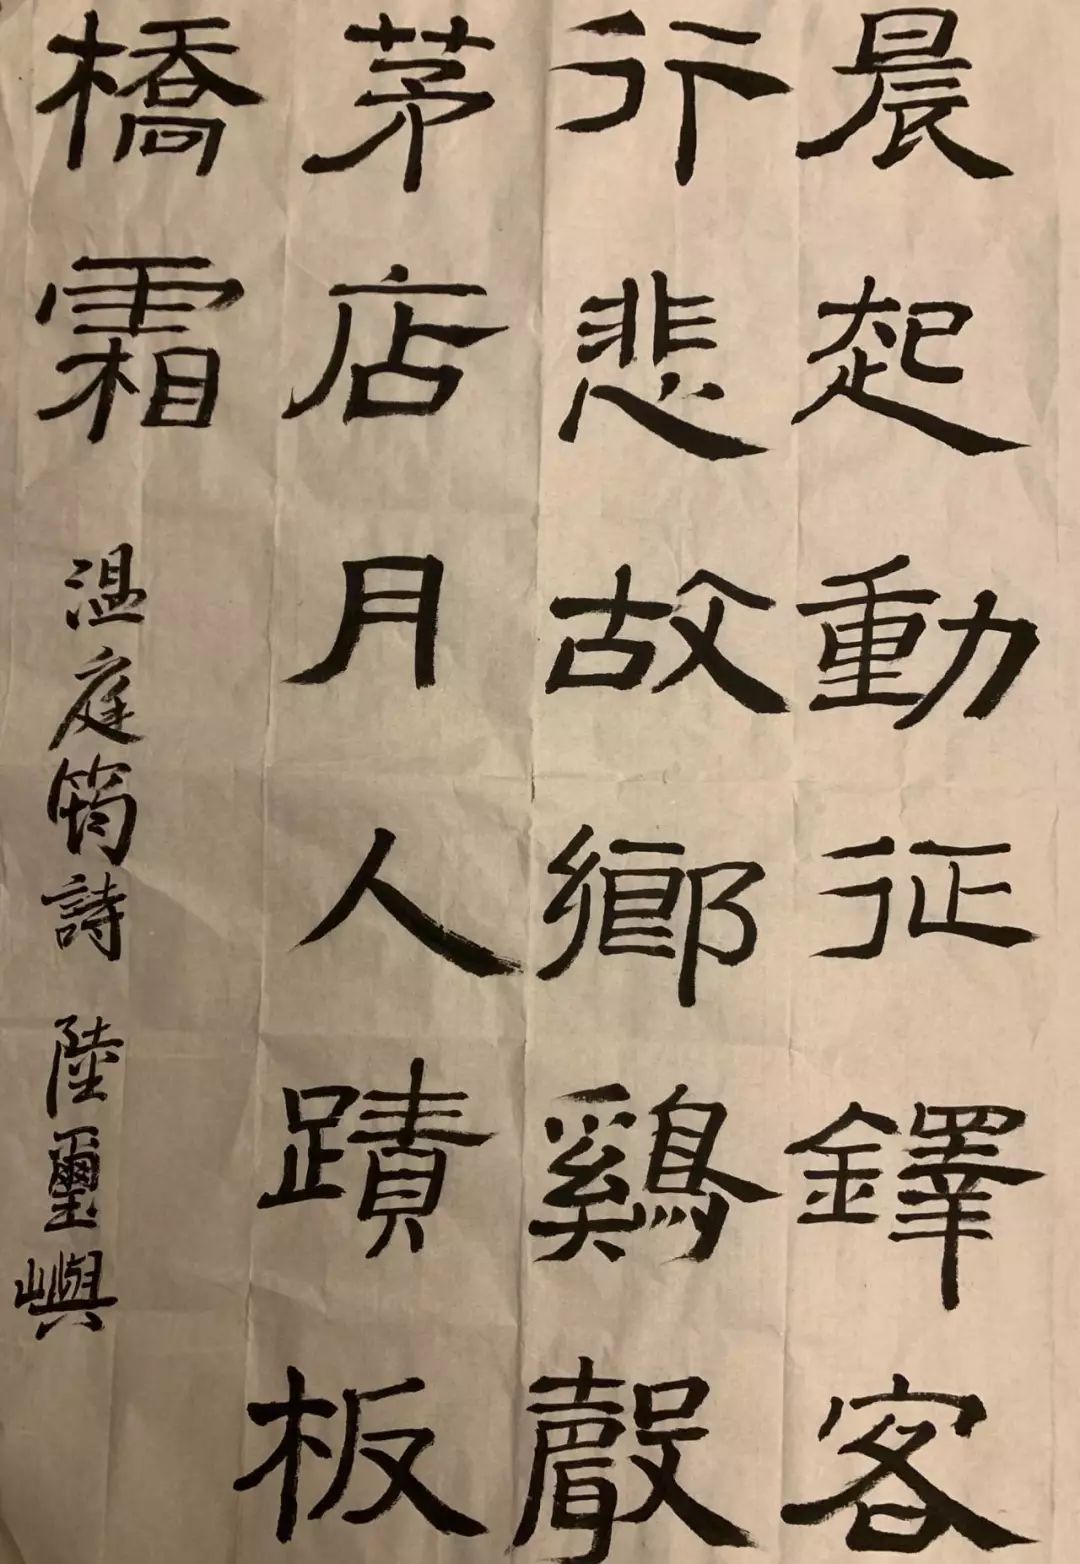 晨起動征鐸客
行悲故鄉鷄聲
茅店月人蹟板
橋霜
溫庭筠詩 陸璽嶼